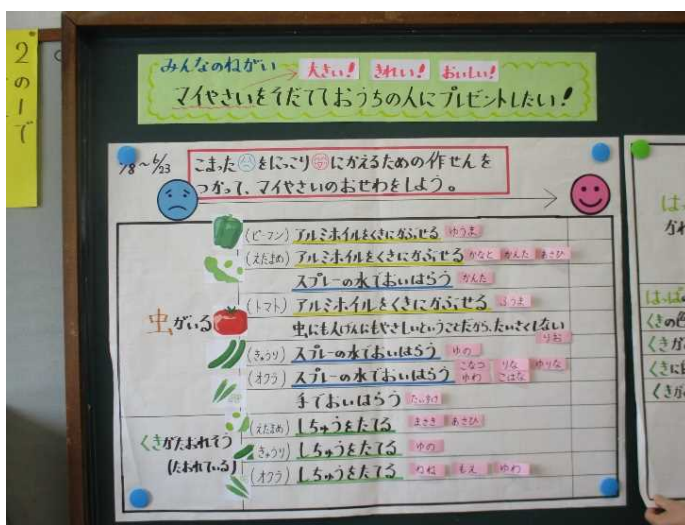 2の1で
みんなのねがい
大きい! きれい! おいしい!
マイやさいをそだてておうちの人にプレゼントしたい!
~6/23
こまったをにっこりにかえるための作せんを
つかって、マイやさいのおせわをしよう。
虫がいる
(ピーマン) アルミホイルをくきにかぶせる ゆうま
(えだまめ) アルミホイルをくきにかぶせる かなと かんた あさひ
スプレーの水でおいはらう かんた
(トマト) アルミホイルをくきにかぶせる ふうま
虫にも人げんにもやさしいということだから、たいさくしない
りお
(きゅうり) スプレーの水でおいはらう ゆの
(オクラ) スプレーの水でおいはらう こなつ りな ゆりな
ゆわ こはな
手でおいはらう
くきがたおれそう
(たおれている)
(えだまめ) しちゅうをたてる まさき あさひ
(きゅうり) しちゅうをたてる ゆの
(オクラ) しちゅうをたてる ねね もえ ゆわ
はっ
かれ
はっぱの
くきの色
くきが
くきに
くきが